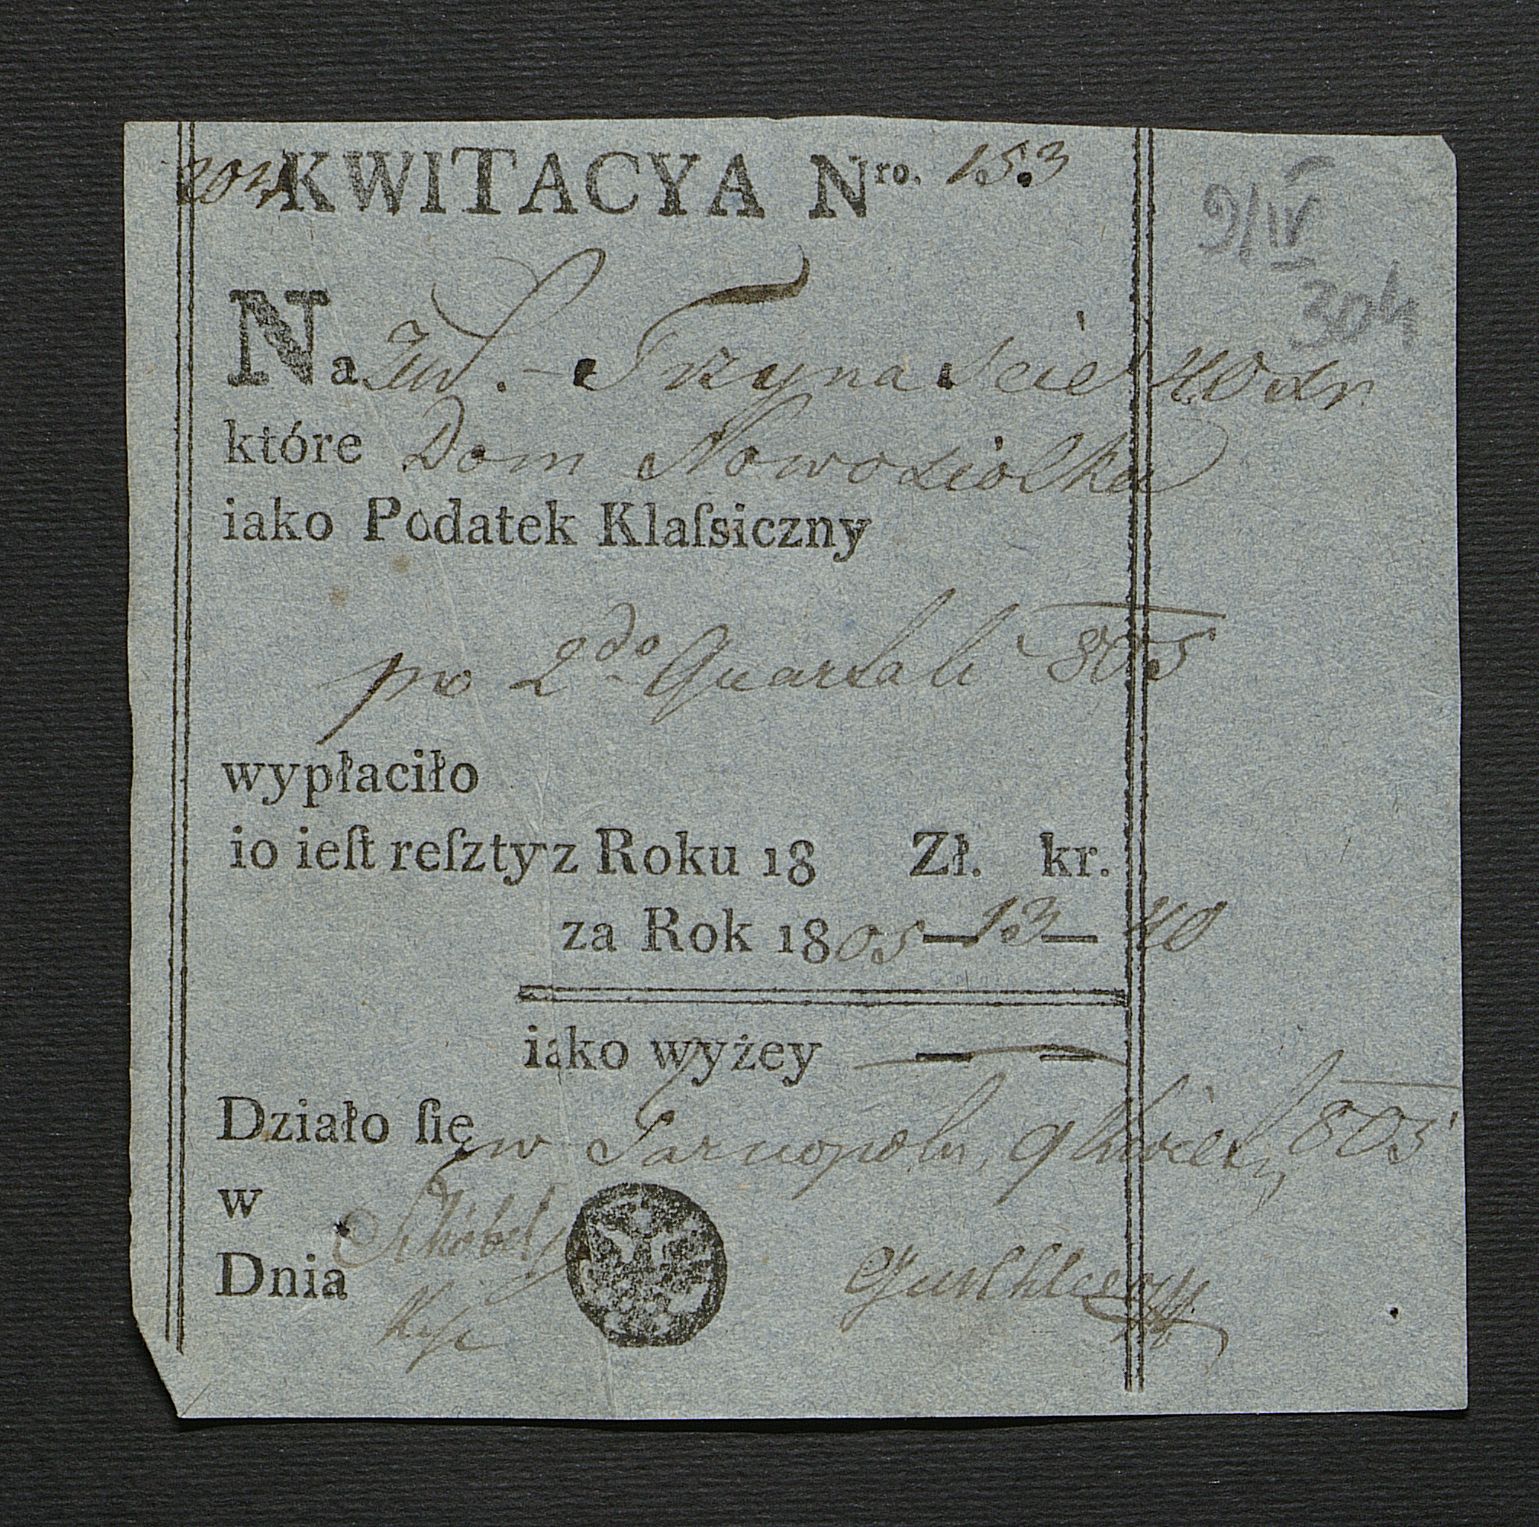 KWITACYA Nro. 153
9/IV
304
Na Trzynaście 40 xr
które Dom Nowosiolka
iako Podatek Klaſsiczny
po 2do Quartali 805
wypłaciło
io ieſt reſzty z Roku 18 Zł. kr.
za Rok 1805 — 13 — 40
iako wyżey — —
Działo ſię w Tarnopolu, 9 805
w
Dnia